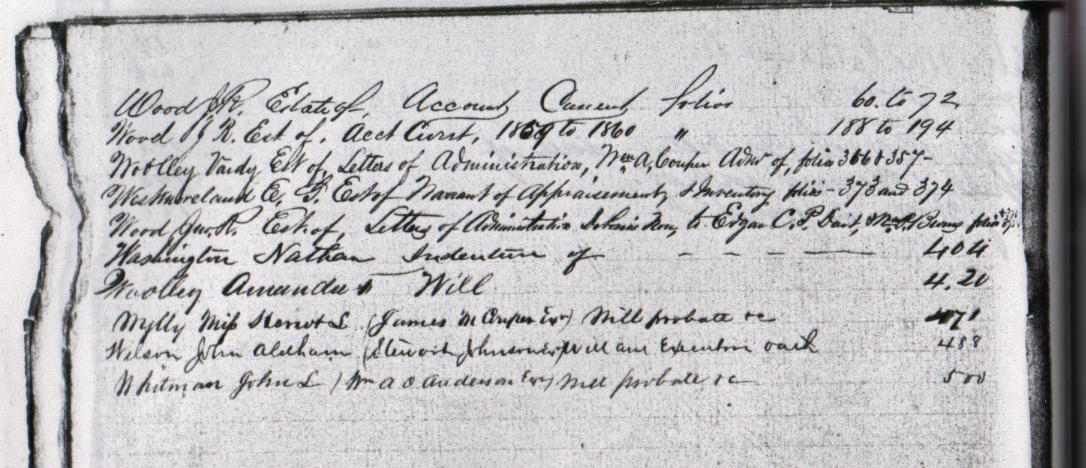 Wood J. R. Estate of, Account Current folios 60. to 72
Wood J R. Est of, Acct Curnt, 1859 to 1860 " 188 to 194
Woolley Vardy Est of, Letters of Administration, Wm A, Couper Admr of, folio 356 & 357-
Westmoreland E, F. Est of Warrant of Appraisement, & Inventory folios - 373 and 374
Wood Jno R. Est of, Letters of Administration De bonis Non, to Edgar C. P. Dart,
Washington Nathan Indenture of - - - - 404
Woolley Amanda Will 4.20
Wylly Miss L. (James M Couper Exr) Will probate &c 471
Wilson John Oldham ( Johnson exr) Will and Executors oath 488
Whitman John L (Wm A O Anderson Exr) Will probate &c 500